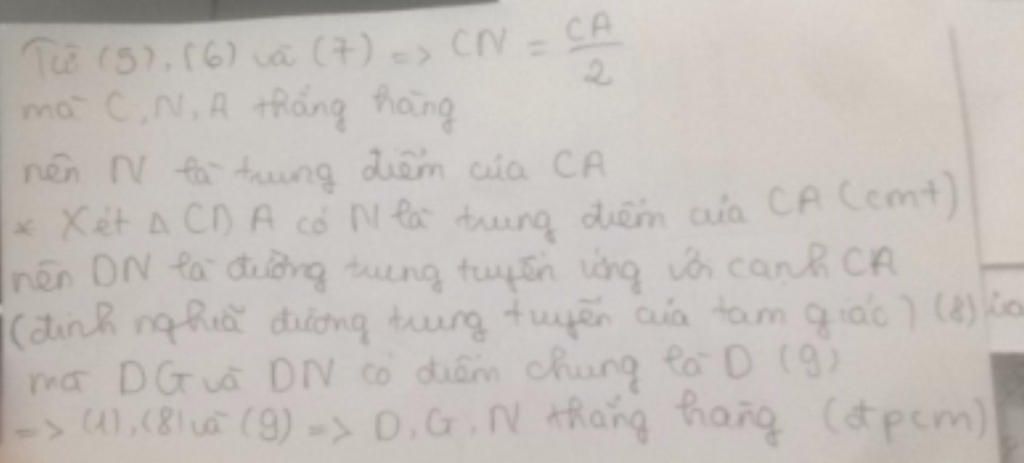 Từ (5), (6) và (7) => CN = CA/2
mà C, N, A thẳng hàng
nên N là trung điểm của CA
* Xét Δ CDA có N là trung điểm của CA (cmt)
nên DN là đường trung tuyến ứng với cạnh CA
(định nghĩa đường trung tuyến của tam giác) (8)
mà DG và DN có điểm chung là D (9)
=> (1), (8) và (9) => D, G, N thẳng hàng (đpcm)